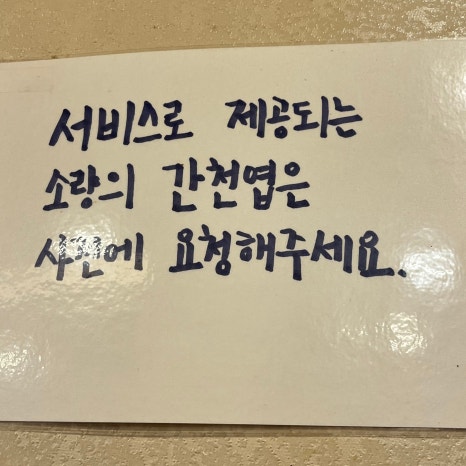 서비스로 제공되는
소량의 간천엽은
사전에 요청해주세요.